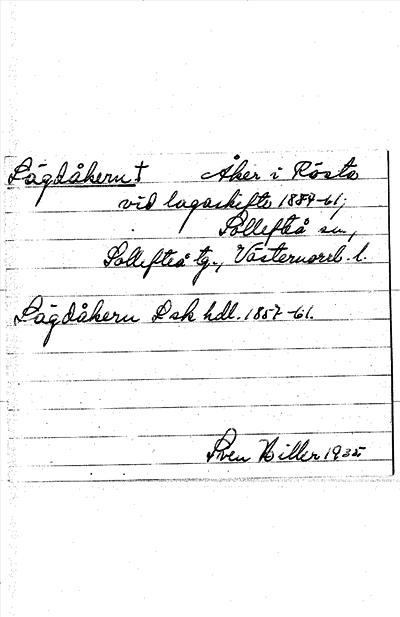 Lägdåkern † Åker i Rösta
vid lagaskifte 1857-61;
Sollefteå sn,
Sollefteå tg., Västernorrl. l.
Lägdåkern Lsk hdl. 1857-61.
Sven Hiller 1935